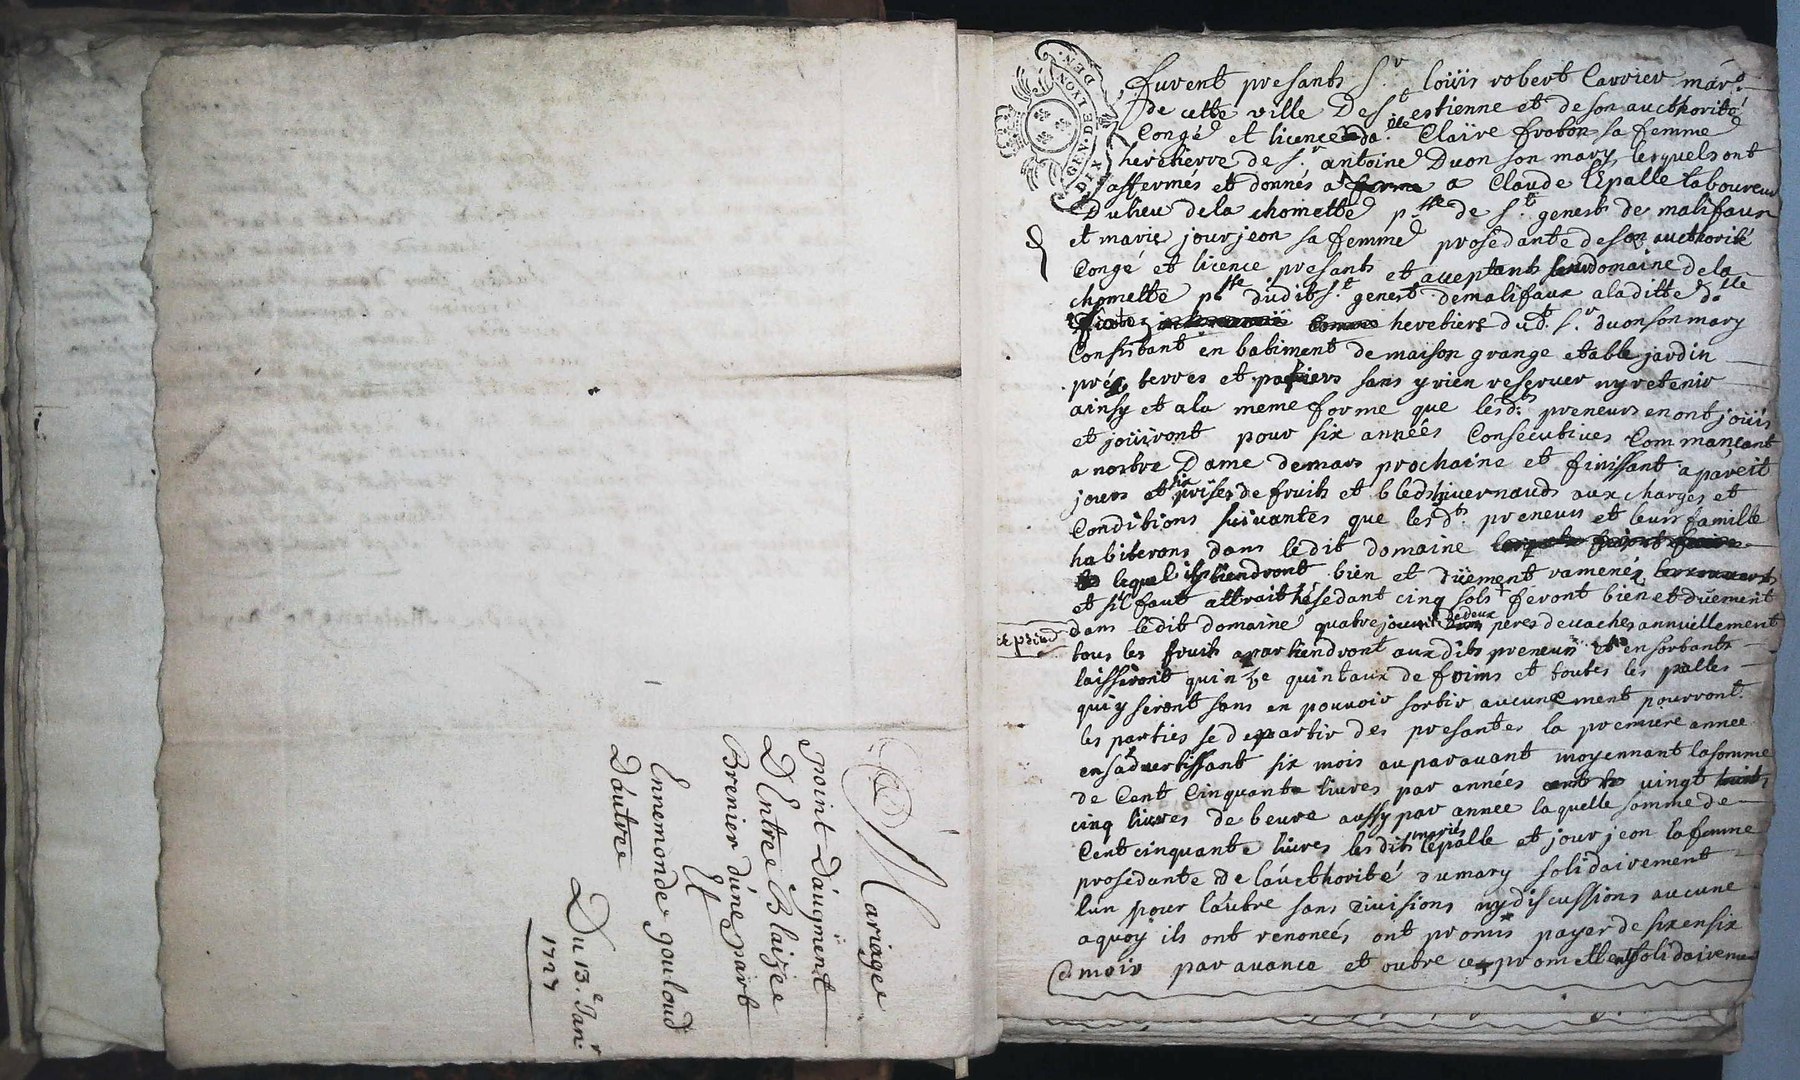 Mariage
point d'augment
D'Entre Blaize
Brenier d'une part
Et
Ennemonde gouloud
D'autre
Du 13.e Janr.
1727
GEN. DE LYON
DIX DEN.
furent presants Sr. loüis robert Carrier mart.
de cette ville De St estienne et de son aucthorité
Congé et licence da.lle Claire frobon sa femme
heretierre de sr. antoine Duon son mary lesquels ont
affermés et donnés a a Claude Epalle laboureur
Du lieu dela chomette psse de st. genest de malifaux
et marie jourjeon sa femme prosedante de son aucthorité
Congé et licence presants et aceptants domaine dela
chomette psse dudit st. genest demalifaux a laditte da.lle
heretiere dud. sr. duon son mary
Consistant en batiment de maison grange etable jardin
prés terres et patiers sans y rien reserver ny retenir
ainsy et ala meme forme que lesd.ts preneurs en ont joüis
et joüiront pour six années Consecutives Commançant
a nostre Dame demars prochaine et finissant a pareit
jours et six prises de fruits et bleds hivernauds aux charges et
Conditions suivantes que lesd.ts preneurs et leurs famille
habiterons dans ledit domaine
lequel ils tiendront bien et düement ramenés
et sil faut attrait sedant cinq sols feront bien et düement
dans ledit domaine quatre de deux peres de vaches annuellement
tous les fruits apartiendront aux dits preneurs et en sortants
laisseront quinze quintaux de foims et toutes les palles
qui y seront sans en pouvoir sortir aucunement pourront
les parties se departir des presantes la premiere annee
en sadvertissant six mois auparavant moyennant la somme
de Cent Cinquante livres par années vingt
cinq livres de beure aussy par annee laquelle somme de
Cent cinquante livres lesdits mariés Epalle et jourjeon la femme
prosedante de laucthorité du mary solidairement
lun pour lautre sans divisions ny discussions aucune
a quoy ils ont renoncés ont promis payer de six en six
mois par avance et outre ce promettent solidairement